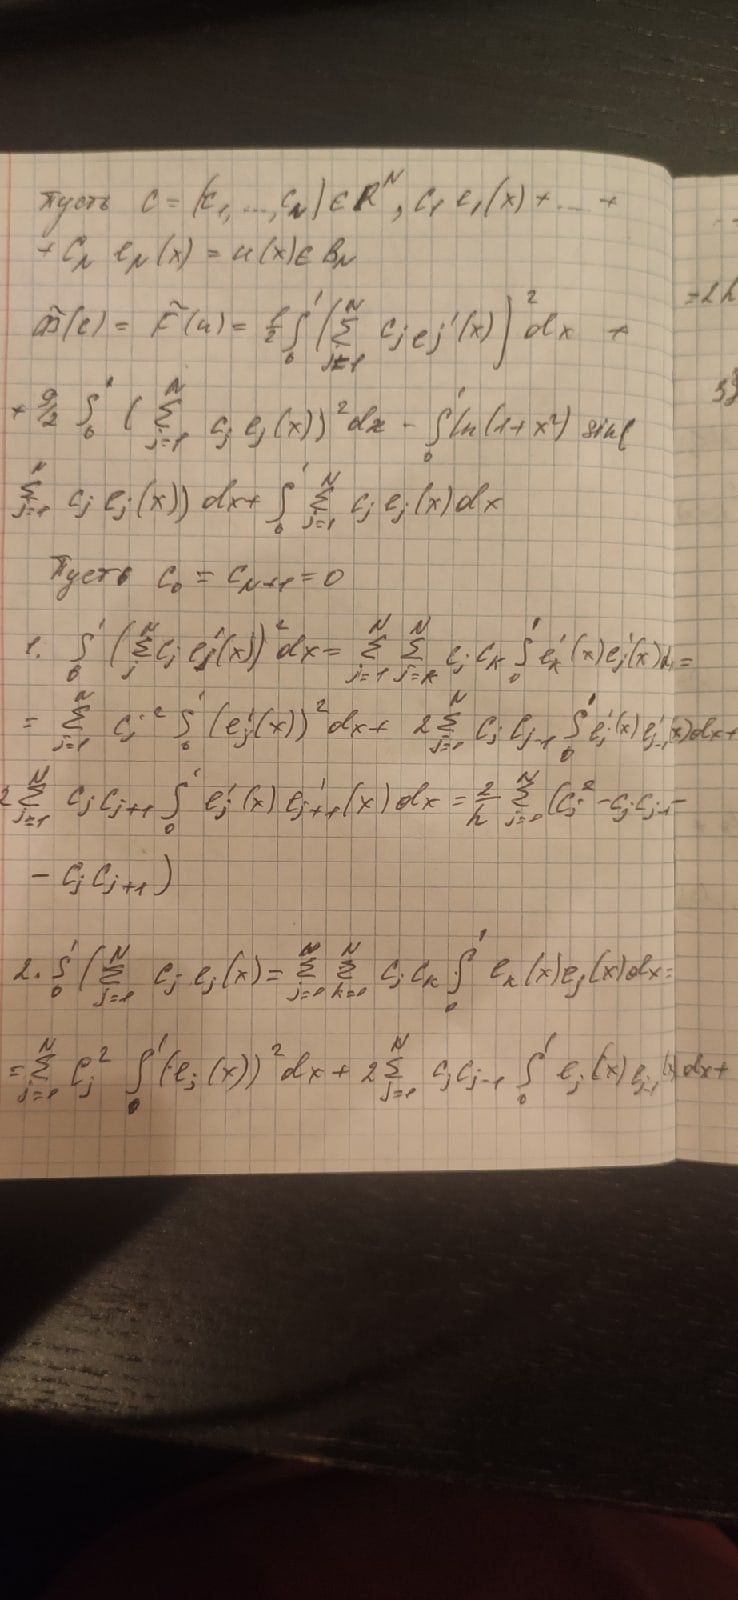 Пусть c = (c₁, ..., c_N) ∈ R^N, c₁ e₁(x) + ... +
+ c_N e_N(x) = u(x) ∈ B_N
(c) = F̃(u) = ∫₀¹ (∑_{j=1}^N c_j e_j'(x))² dx +
+ 9/2 ∫₀¹ (∑_{j=1}^N c_j e_j(x))² dx - ∫₀¹ ln(1+x²) sin(
∑_{j=1}^N c_j e_j(x)) dx + ∫₀¹ ∑_{j=1}^N c_j e_j(x) dx
Пусть c₀ = c_{N+1} = 0
1. ∫₀¹ (∑_j^N c_j e_j'(x))² dx = ∑_{j=1}^N ∑_{j=k}^N c_j c_k ∫₀¹ e_k'(x) e_j'(x) d =
= ∑_{j=1}^N c_j² ∫₀¹ (e_j'(x))² dx + 2∑_{j=1}^N c_j c_{j-1} ∫₀¹ e_j'(x) e_{j-1}'(x) dx +
2∑_{j=1}^N c_j c_{j+1} ∫₀¹ e_j'(x) e_{j+1}'(x) dx = 2/h ∑_{j=1}^N (c_j² - c_j c_{j-1} -
- c_j c_{j+1})
2. ∫₀¹ (∑_{j=1}^N c_j e_j(x) = ∑_{j=1}^N ∑_{k=1}^N c_j c_k ∫₀¹ e_k(x) e_j(x) dx =
= ∑_{j=1}^N c_j² ∫₀¹ (e_j(x))² dx + 2∑_{j=1}^N c_j c_{j-1} ∫₀¹ e_j(x) e_{j-1}(x) dx +